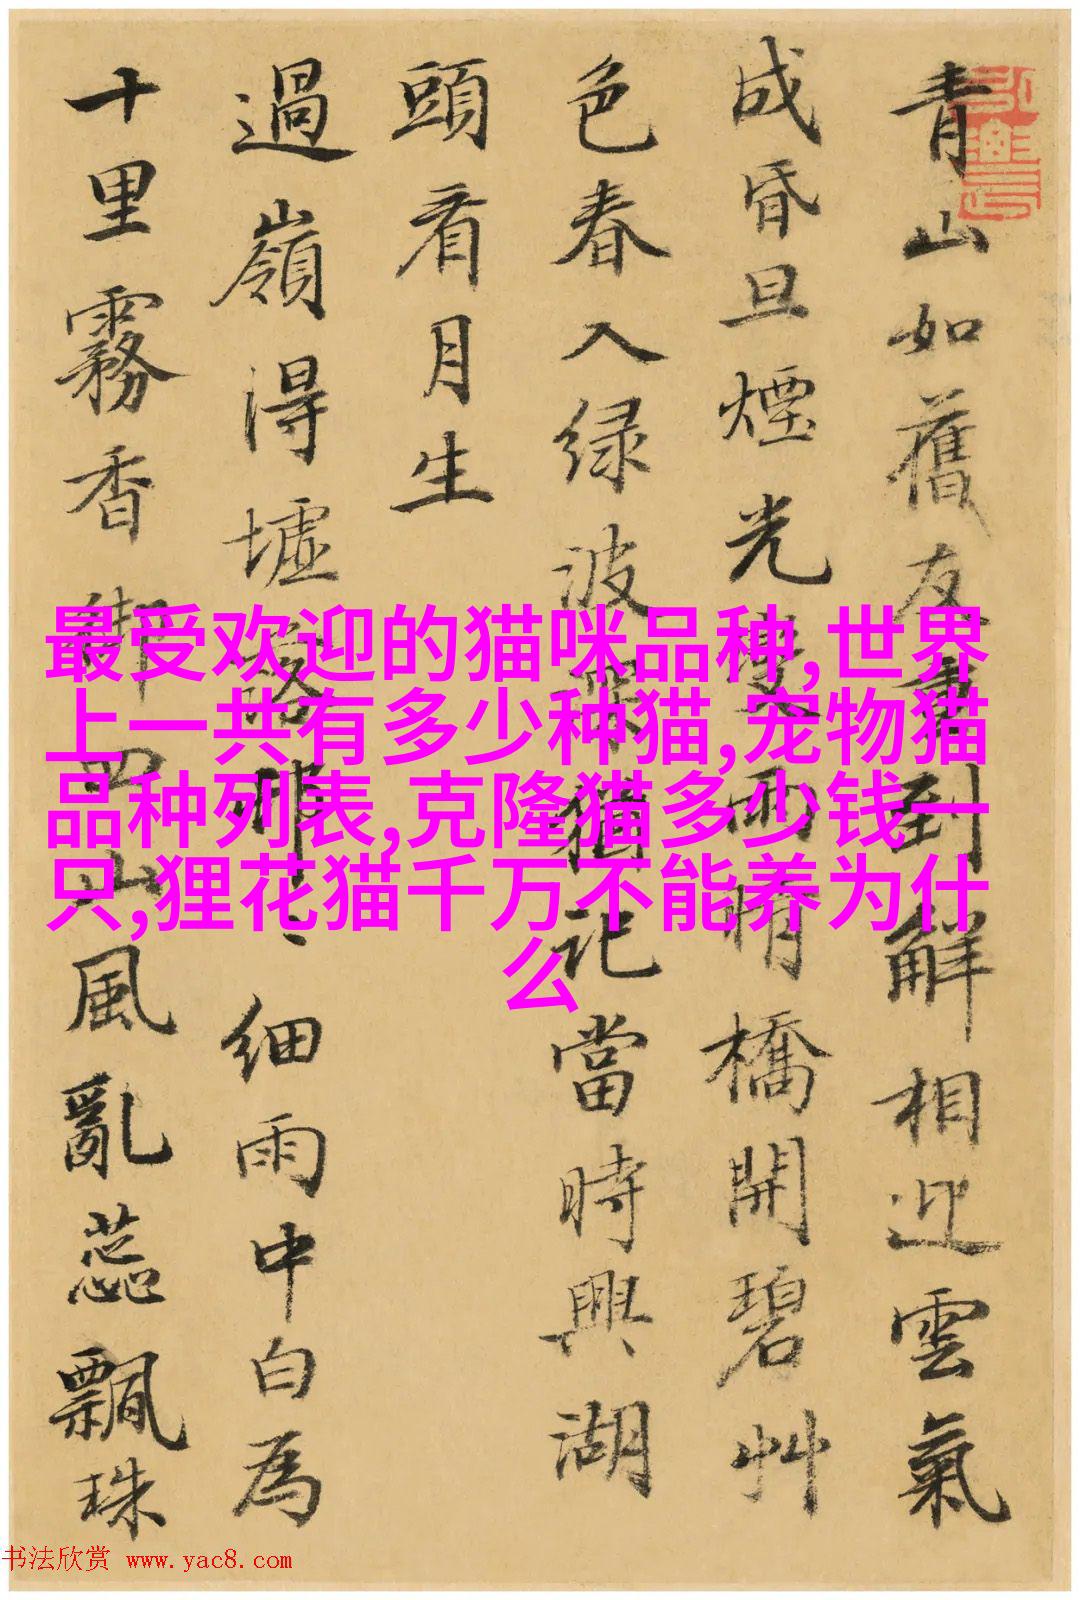 青山如舊友到解相迎雲氣
成昏旦煙光雨晴橋開碧艸
色春入绿波猶記當時興湖
頭看月生
過嶺得墟路邪〻細雨中白為
十里霧香四山風亂蕊飄珠
最受欢迎的猫咪品种,世界
上一共有多少种猫,宠物猫
品种列表,克隆猫多少钱一
只,狸花猫千万不能养为什
么
书法欣赏 www.yac8.com